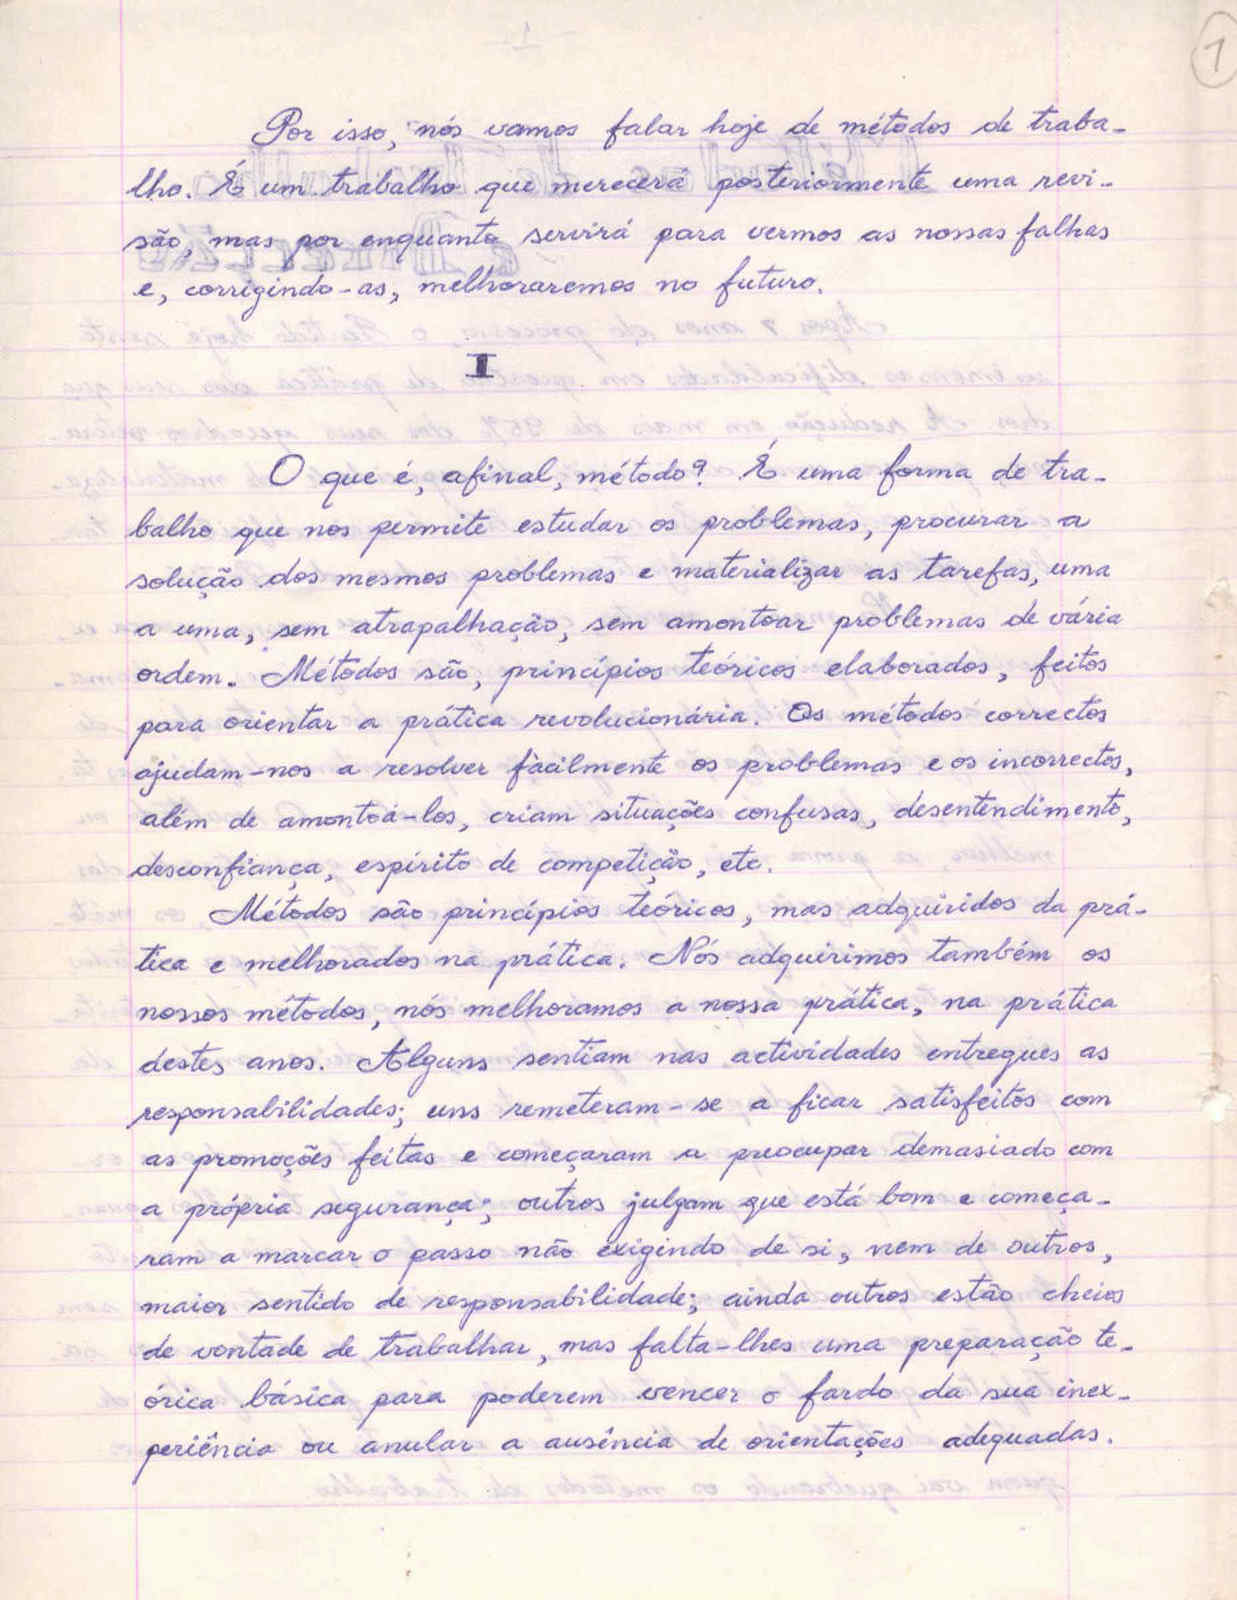 1
Por isso, nós vamos falar hoje de métodos de traba-
lho. É um trabalho que merecerá posteriormente uma revi-
são, mas por enquanto servirá para vermos as nossas falhas
e, corrigindo-as, melhoraremos no futuro.
I
O que é, afinal, método? É uma forma de tra-
balho que nos permite estudar os problemas, procurar a
solução dos mesmos problemas e materializar as tarefas, uma
a uma, sem atrapalhação, sem amontoar problemas de vária
ordem. Métodos são, princípios teóricos elaborados, feitos
para orientar a prática revolucionária. Os métodos correctos
ajudam-nos a resolver fàcilmente os problemas e os incorrectos,
além de amontoá-los, criam situações confusas, desentendimento,
desconfiança, espírito de competição, etc.
Métodos são princípios teóricos, mas adquiridos da prá-
tica e melhorados na prática. Nós adquirimos também os
nossos métodos, nós melhoramos a nossa prática, na prática
destes anos. Alguns sentiam nas actividades entregues as
responsabilidades; uns remeteram-se a ficar satisfeitos com
as promoções feitas e começaram a preocupar demasiado com
a própria segurança; outros julgam que está bom e começa-
ram a marcar o passo não exigindo de si, nem de outros,
maior sentido de responsabilidade; ainda outros estão cheios
de vontade de trabalhar, mas falta-lhes uma preparação te-
órica básica para poderem vencer o fardo da sua inex-
periência ou anular a ausência de orientações adequadas.